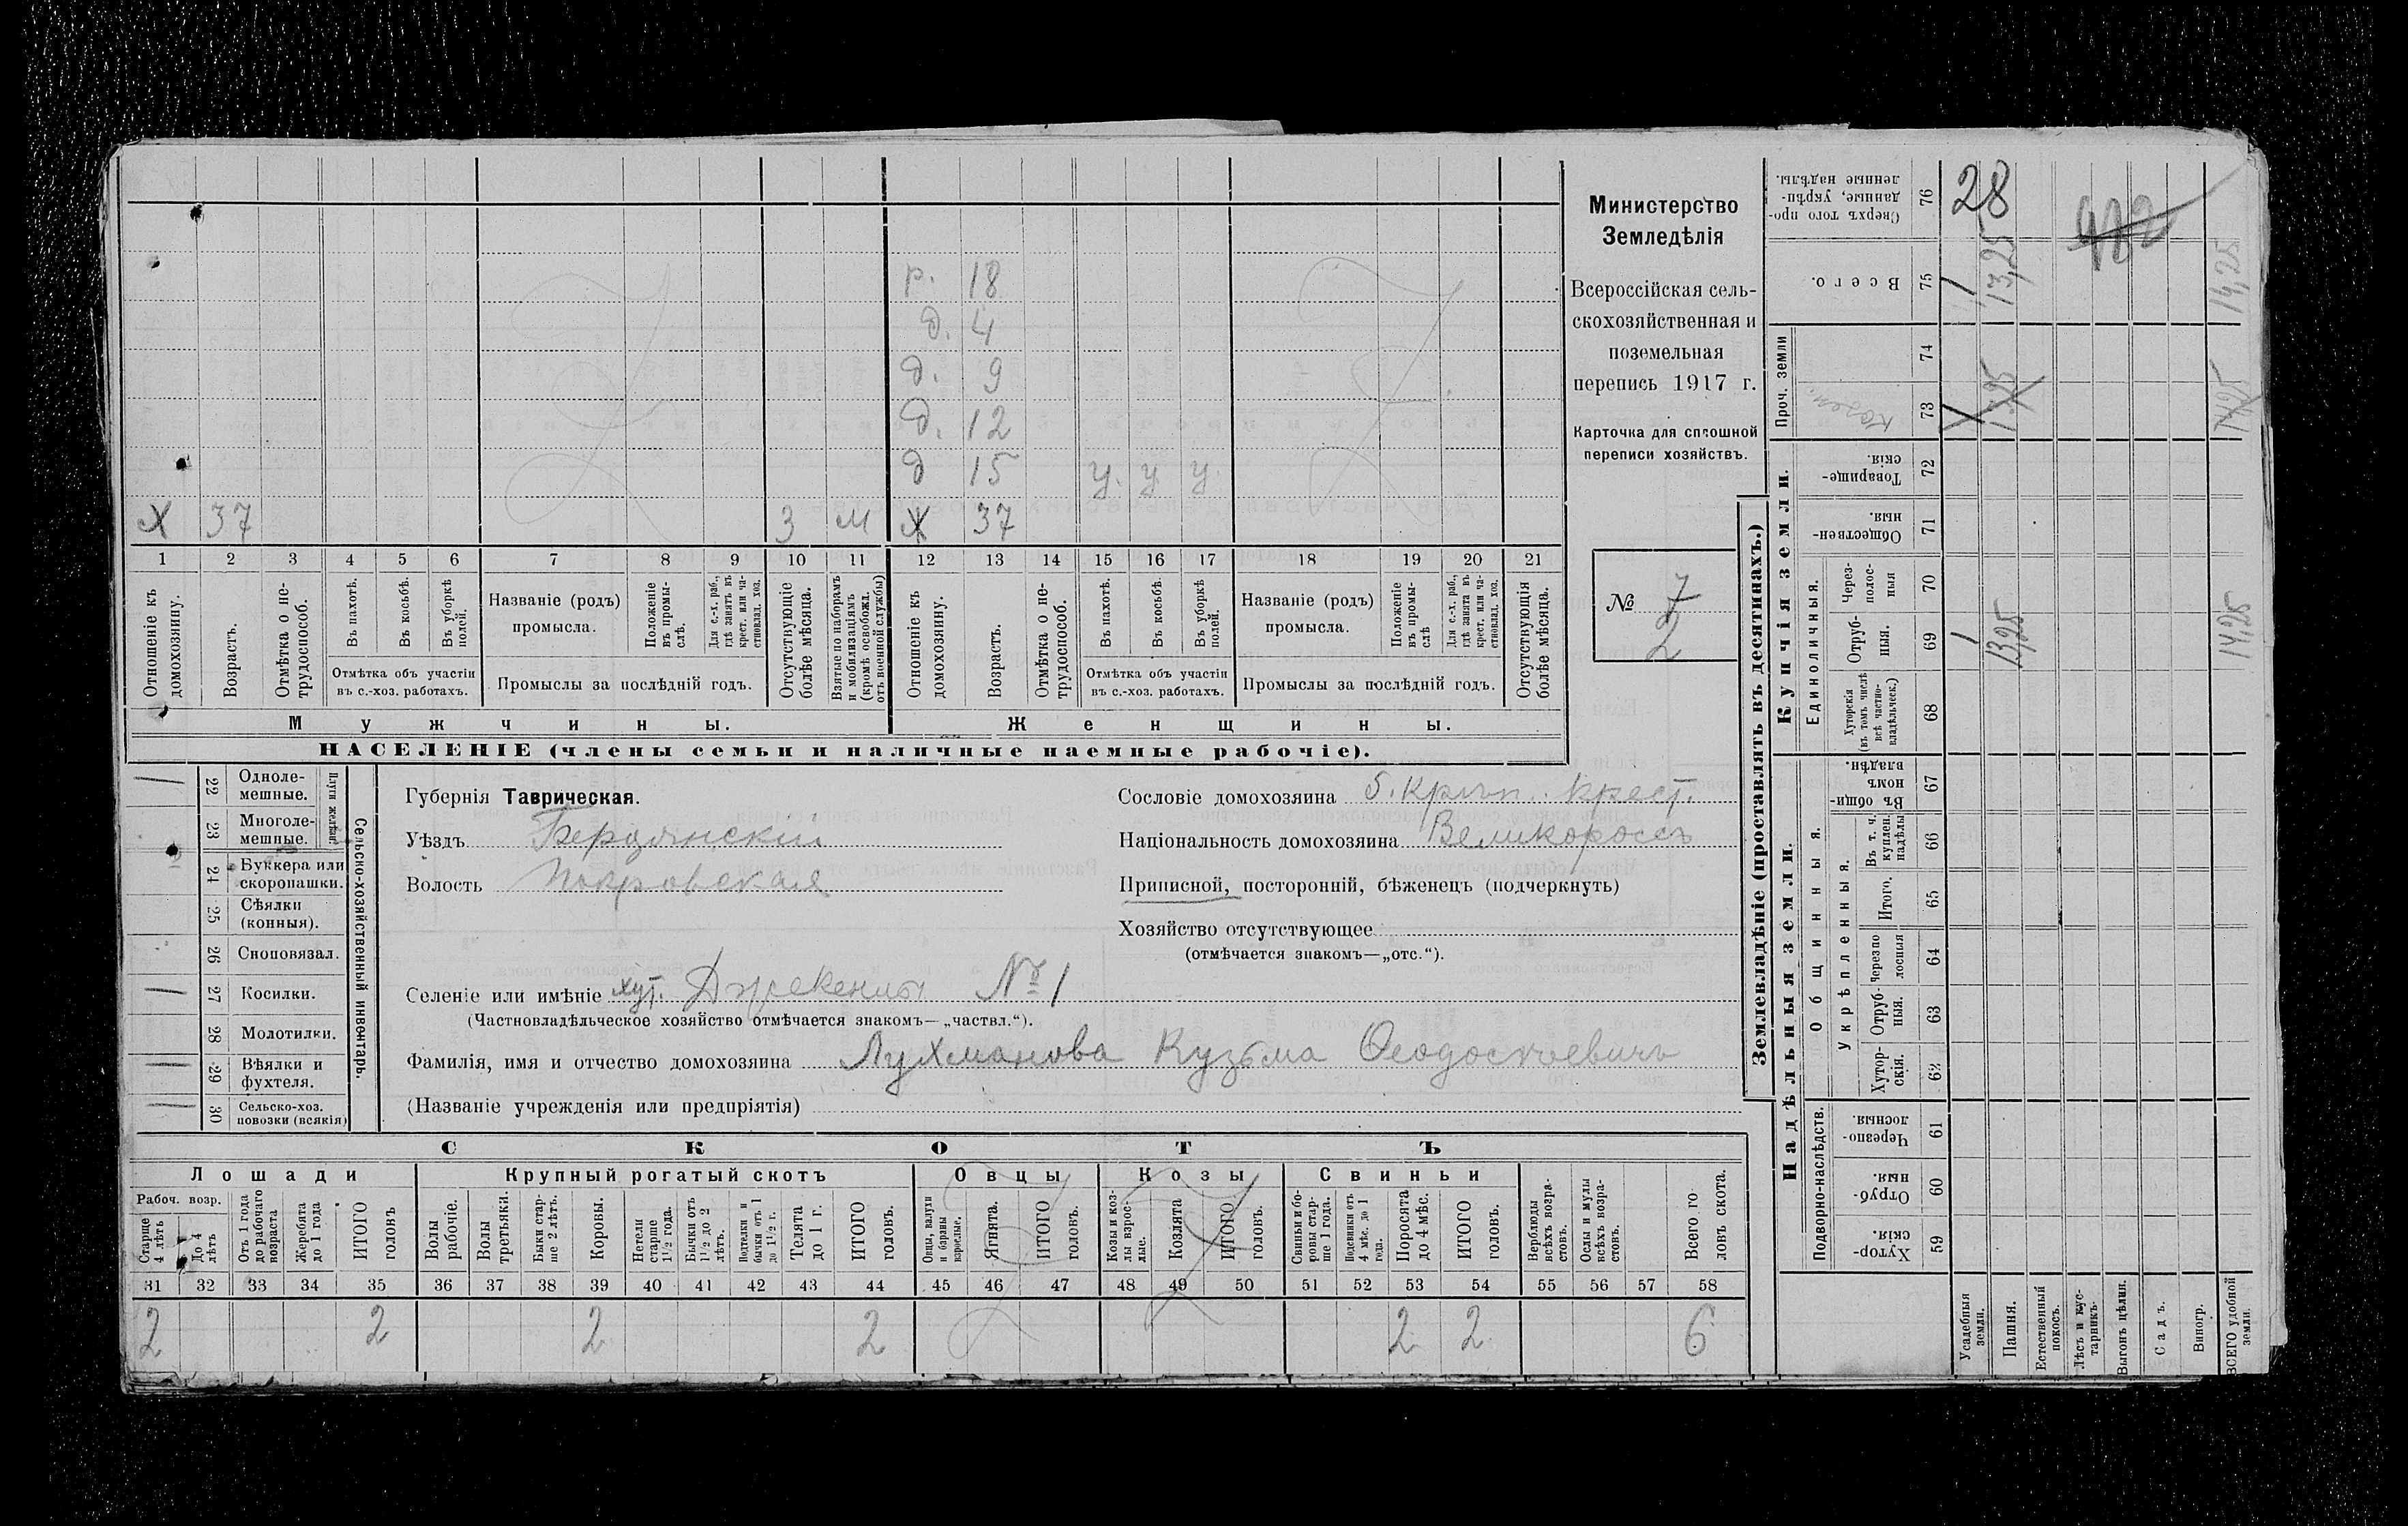 р. 18
д. 4
д. 9
д. 12
д 15 у. у у.
х 37 3 м х 37
1 2 3 4 5 6 7 8 9 10 11 12 13 14 15 16 17 18 19 20 21
Отношеніе къ домохозяину.
Возрастъ.
Отмѣтка о не-
трудоспособ.
Въ пахотѣ.
Въ косьбѣ.
Въ уборкѣ
полей.
Отмѣтка объ участіи
въ с.-хоз. работахъ.
Названіе (родъ)
промысла.
Положеніе
въ промы-
слѣ.
Для с.-х. раб.,
гдѣ занятъ въ
крест. или ча-
стновлад. хоз.
Промыслы за послѣдній годъ.
Отсутствующіе
болѣе мѣсяца.
Взятые по наборамъ
и мобилизаціямъ
(кромѣ освобожд.
отъ военной службы)
Отношеніе къ
домохозяину.
Возрастъ.
Отмѣтка о не-
трудоспособ.
Въ пахотѣ.
Въ косьбѣ.
Въ уборкѣ
полей.
Отмѣтка объ участіи
въ с.-хоз. работахъ.
Названіе (родъ)
промысла.
Положеніе
въ промы-
слѣ
Для с.-х. раб.,
гдѣ занята въ
крест. или ча-
стновлад. хоз.
Промыслы за послѣдній годъ.
Отсутствующія
болѣе мѣсяца.
Мужчины.
Женщины.
НАСЕЛЕНІЕ (члены семьи и наличные наемные рабочіе).
Министерство
Земледѣлія
Всероссійская сель-
скохозяйственная и
поземельная
перепись 1917 г.
Карточка для сплошной
переписи хозяйствъ.
№ 7
2
22 Одноле-
мешные.
23 Многоле-
мешные.
24 Буккера или
скоропашки.
25 Сѣялки
(конныя).
26 Сноповязал.
27 Косилки.
28 Молотилки.
29 Вѣялки и
фухтеля.
30 Сельско-хоз.
повозки (всякія)
Сельско-хозяйственный инвентарь.
Губернія Таврическая.
Уѣздъ Бердянскій
Волость Покровская
Селеніе или имѣніе хут. №1
(Частновладѣльческое хозяйство отмѣчается знакомъ—„частвл.“).
Фамилія, имя и отчество домохозяина Лухманова Кузьма Ѳеодосіевичъ
(Названіе учрежденія или предпріятія)
Сословіе домохозяина крест.
Національность домохозяина Великороссъ
Приписной, посторонній, бѣженецъ (подчеркнуть)
Хозяйство отсутствующее
(отмѣчается знакомъ—„отс.“).
СКОТЪ
Лошади
Крупный рогатый скотъ
Овцы
Козы
Свиньи
Рабоч. возр.
Старше
4 лѣтъ
До 4
лѣтъ
Отъ 1 года
до рабочаго
возраста
Жеребята
до 1 года
ИТОГО
головъ
Волы
рабочіе.
Волы
третьяки.
Быки стар-
ше 2 лѣтъ.
Коровы.
Нетели
старше
1½ года.
Бычки отъ
1½ до 2
лѣтъ.
Телята
до 1 г.
ИТОГО
головъ.
Овцы, валухи
и бараны
взрослые.
Ягнята.
ИТОГО
головъ.
Козы и коз-
лы взрос-
лые.
Козлята
ИТОГО
головъ.
Свиньи и бо-
ровы стар-
ше 1 года.
Подсвинки отъ
4 мѣс. до 1
года.
Поросята
до 4 мѣс.
ИТОГО
головъ.
Верблюды
всѣхъ возра-
стовъ.
Ослы и мулы
всѣхъ возра-
стовъ.
Всего го
ловъ скота.
31 32 33 34 35 36 37 38 39 40 41 42 43 44 45 46 47 48 49 50 51 52 53 54 55 56 57 58
2 2 2 2 2 2 6
Землевладѣніе (проставлять въ десятинахъ.)
Надѣльныя земли.
Купчія земли.
Проч. земли
Подворно-наслѣдств.
Общинныя.
Укрѣпленныя.
Единоличныя.
Хутор-
скія. 59
Отруб-
ныя. 60
Черезпо-
лосныя 61
Хутор-
скія. 62
Отруб-
ныя. 63
Черезпо
лосныя 64
Итого. 65
Въ т. ч.
куплен.
надѣлы 66
Въ общи-
номъ
владѣн. 67
Хуторскія
(въ томъ числѣ
всѣ частно-
владѣльческ.) 68
Отруб-
ныя. 69
Через-
полос-
ныя 70
Обществен-
ныя. 71
Товарище-
скія. 72
73
74
Всего. 75
Сверхъ того про-
данные, укрѣп-
ленные надѣлы. 76
Усадебныя
земли. 1 1 28
Пашня. 13,25 13,25
Естественный
покосъ.
Лѣсъ и кус-
тарникъ.
Выгонъ цѣлин.
Садъ.
Виногр.
ВСЕГО удобной
земли. 14,25 14,25